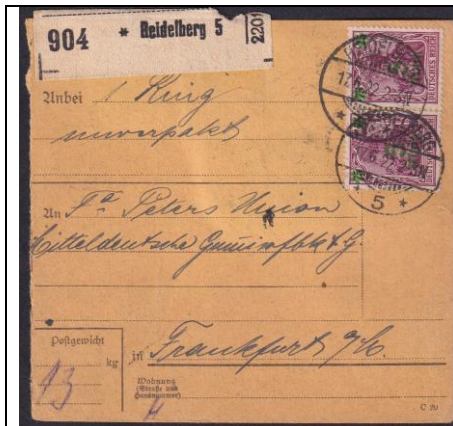 904 * Heidelberg 5 220
Anbei 1 Ring
unverpackt
An Fa Peters Union
Mitteldeutsche Gummifbk A.G.
Postgewicht
kg
13
in Frankfurt a/M.
Wohnung
(Straße und
Hausnummer)
C 29
DEUTSCHES REICH
HEIDELBERG
17.6.22.2-3N
* 5 *